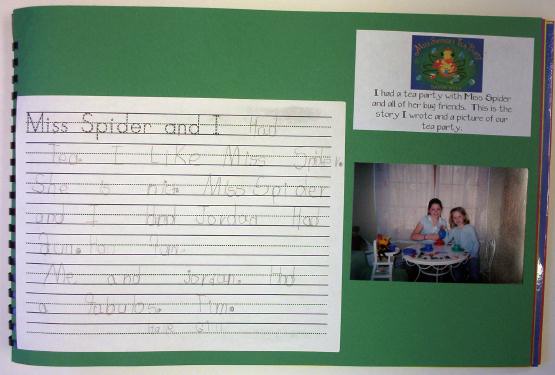 Miss Spider and I Had
Tea. I Like Miss Spider.
She is nice Miss Spider
and I And Jordan Had
Fun. For
Me and Jordan. Had
a fabulos. Tim.
Miss Spider's Tea Party
I had a tea party with Miss Spider
and all of her bug friends. This is the
story I wrote and a picture of our
tea party.